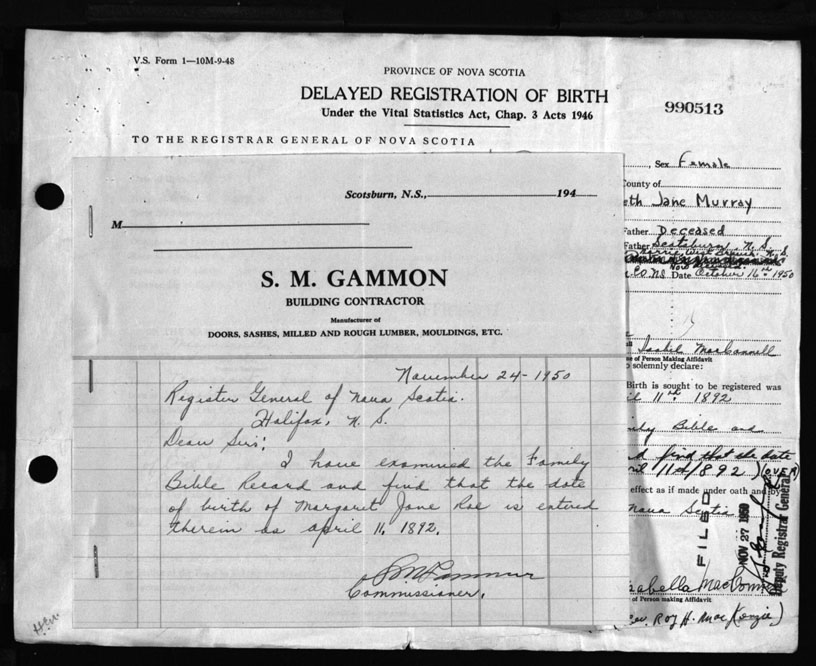 V.S. Form 1—10M-9-48
PROVINCE OF NOVA SCOTIA
DELAYED REGISTRATION OF BIRTH
Under the Vital Statistics Act, Chap. 3 Acts 1946
990513
TO THE REGISTRAR GENERAL OF NOVA SCOTIA
Scotsburn, N.S., 194
M
S. M. GAMMON
BUILDING CONTRACTOR
Manufacturer of
DOORS, SASHES, MILLED AND ROUGH LUMBER, MOULDINGS, ETC.
November 24-1950
Register General of Nova Scotia.
Halifax, N. S.
Dear Sirs:
I have examined the Family
Bible Record and find that the date
of birth of Margaret Jane Rae is entered
therein as April 11, 1892.
S M Gammon
Commissioner.
, Sex Female
County of
eth Jane Murray
Father Deceased
Father Scotsburn, N.S.
West Branch, N.S.
Date October 16th 1950
Isabel MacConnell
of Person Making Affidavit
solemnly declare:
Birth is sought to be registered was
11th 1892
Bible and
find that the date
11th 1892) (OVER)
effect as if made under oath and by
Nova Scotia
FILED
NOV 27 1950
Deputy Registrar General
of Person making Affidavit
Roy H. MacKenzie)